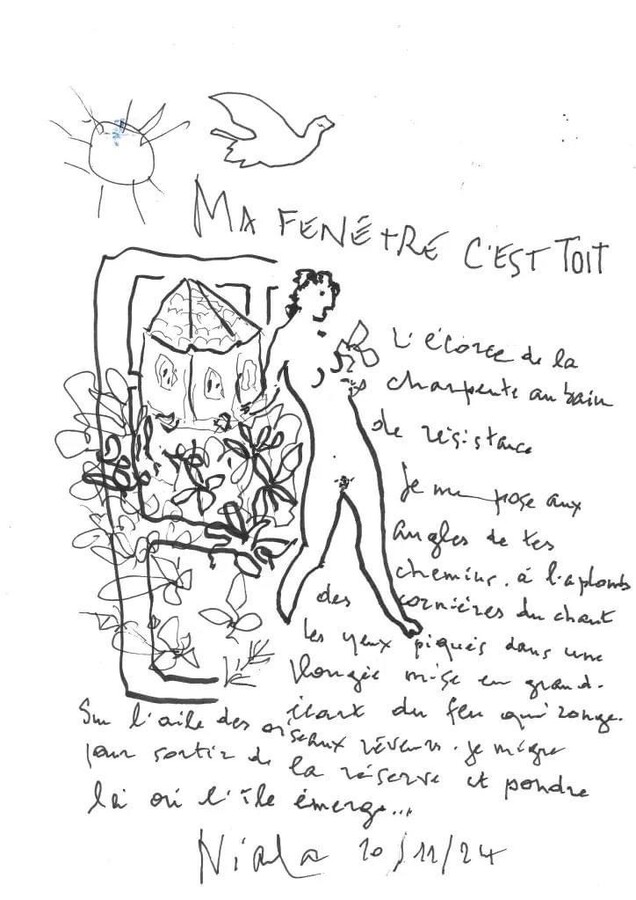 MA FENÊTRE C'EST TOIT
L'écorce de la
charpente au bain
de résistance
Je me pose aux
angles de tes
chemins. à l'aplomb
des cornières du chant
les yeux piqués dans une
plongée mise en grand-
écart du feu qui ronge.
Sur l'aile des oiseaux rêveurs. je migre
pour sortir de la réserve et pondre
là où l'île émerge...
Niala 20/11/24